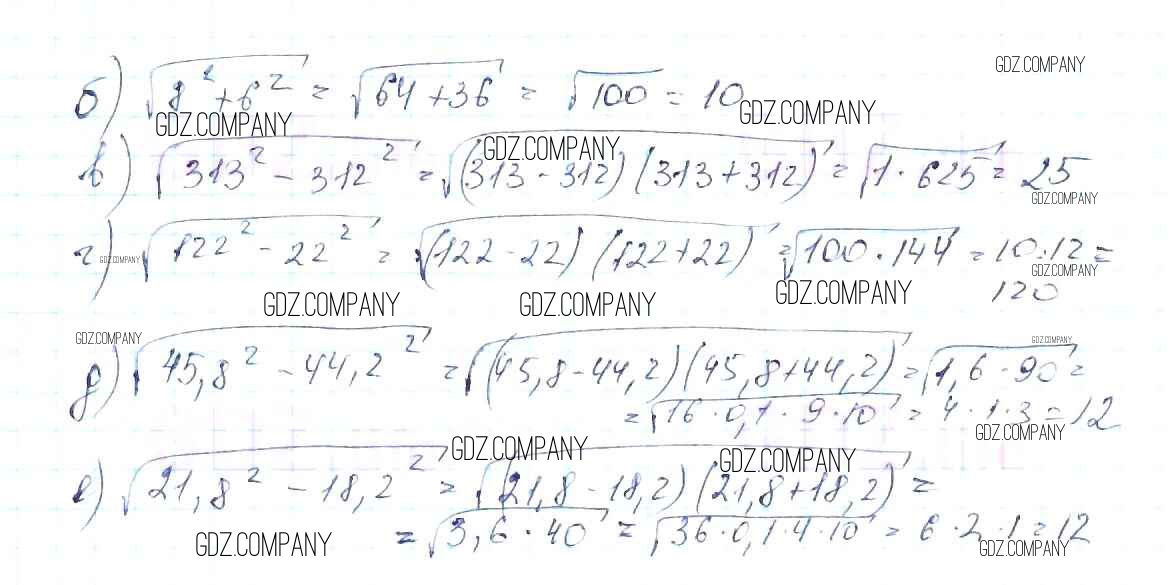 б) √(8² + 6²) = √(64 + 36) = √100 = 10
GDZ.COMPANY
GDZ.COMPANY
GDZ.COMPANY
в) √(313² - 312²) = √((313 - 312)(313 + 312)) = √(1 · 625) = 25
GDZ.COMPANY
GDZ.COMPANY
г) √(122² - 22²) = √((122 - 22)(122 + 22)) = √(100 · 144) = 10 · 12 =
120
GDZ.COMPANY
GDZ.COMPANY
GDZ.COMPANY
GDZ.COMPANY
GDZ.COMPANY
GDZ.COMPANY
GDZ.COMPANY
д) √(45,8² - 44,2²) = √((45,8 - 44,2)(45,8 + 44,2)) = √(1,6 · 90) =
= √(16 · 0,1 · 9 · 10) = 4 · 1 · 3 = 12
GDZ.COMPANY
GDZ.COMPANY
GDZ.COMPANY
е) √(21,8² - 18,2²) = √((21,8 - 18,2)(21,8 + 18,2)) =
= √(3,6 · 40) = √(36 · 0,1 · 4 · 10) = 6 · 2 · 1 = 12
GDZ.COMPANY
GDZ.COMPANY